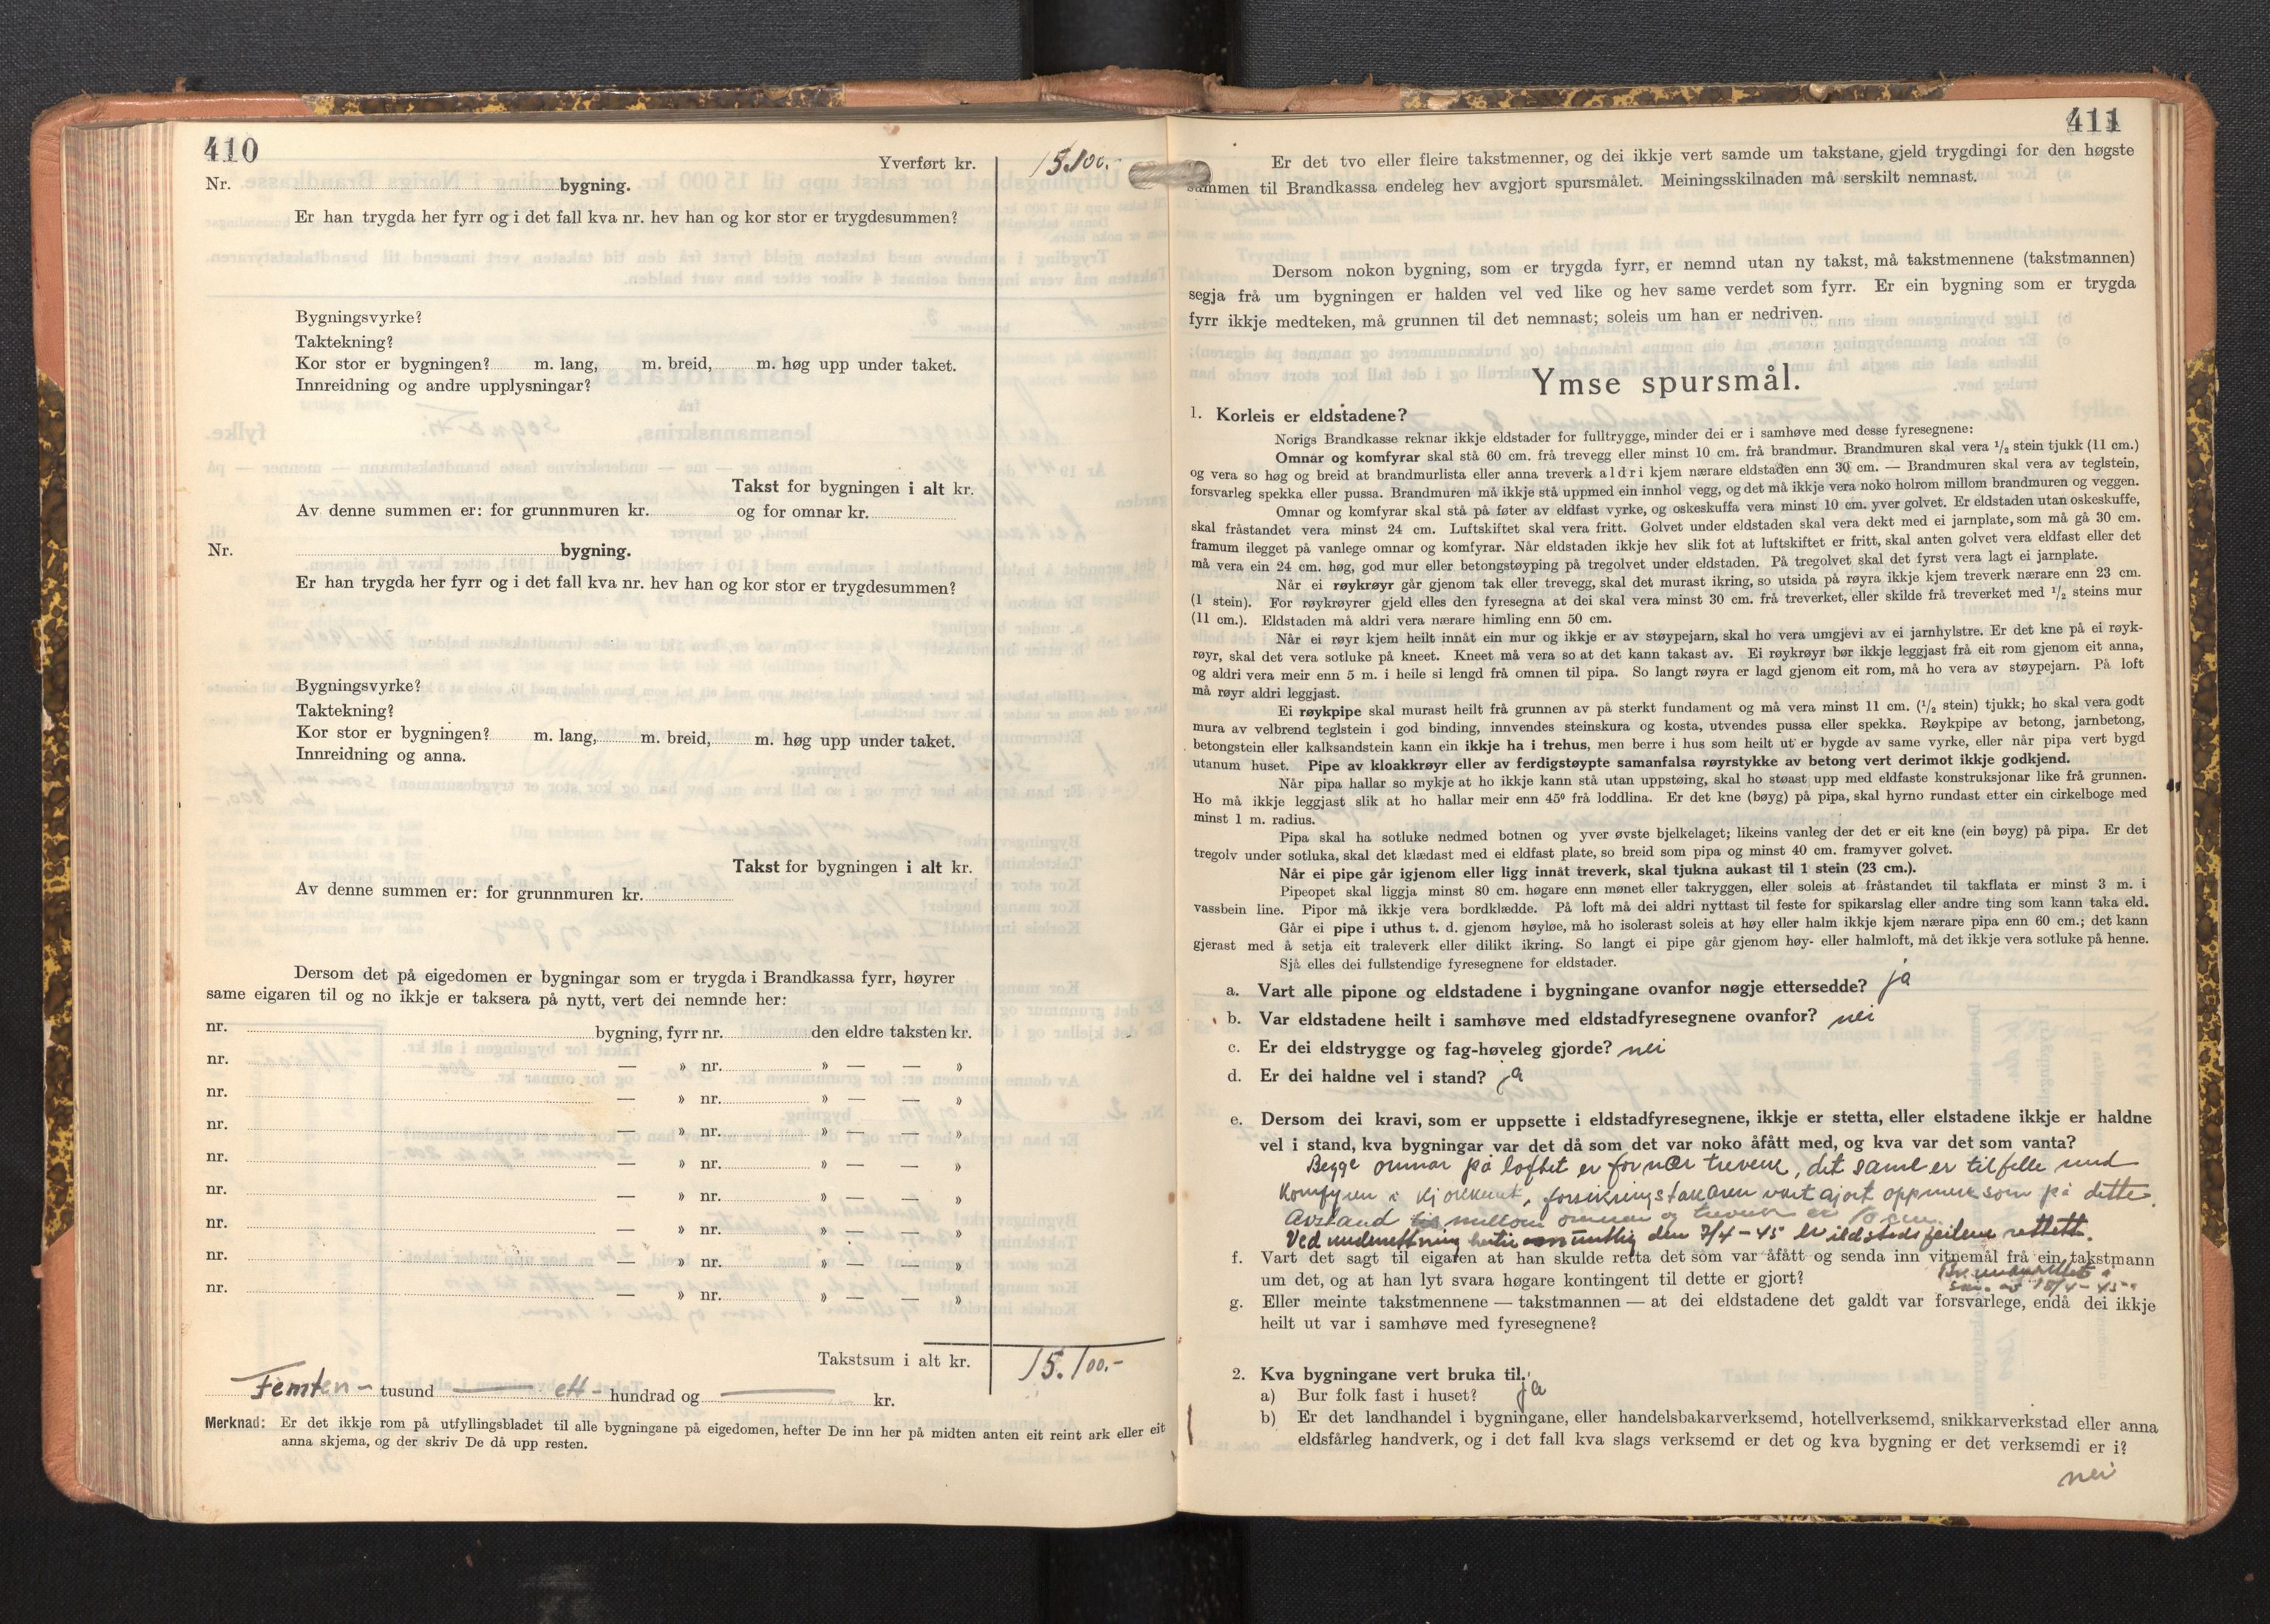 410
Yverført kr. 15.100.-
Nr. bygning.
Er han trygda her fyrr og i det fall kva nr. hev han og kor stor er trygdesummen?
Bygningsvyrke?
Taktekning?
Kor stor er bygningen? m. lang, m. breid, m. høg upp under taket.
Innreidning og andre upplysningar?
Takst for bygningen i alt kr.
Av denne summen er: for grunnmuren kr. og for omnar kr.
Nr. bygning.
Er han trygda her fyrr og i det fall kva nr. hev han og kor stor er trygdesummen?
Bygningsvyrke?
Taktekning?
Kor stor er bygningen? m. lang, m. breid, m. høg upp under taket.
Innreidning og anna.
Takst for bygningen i alt kr.
Av denne summen er: for grunnmuren kr.
Dersom det på eigedomen er bygningar som er trygda i Brandkassa fyrr, høyrer
same eigaren til og no ikkje er taksera på nytt, vert dei nemnde her:
nr. bygning, fyrr nr. den eldre taksten kr.
nr. — » nr. » — — »
nr. — » nr. » — — »
nr. — » nr. » — — »
nr. — » nr. » — — »
nr. — » nr. » — — »
nr. — » nr. » — — »
nr. — » nr. » — — »
nr. — » nr. » — — »
Takstsum i alt kr. 15.100.-
Femten - tusund — ett - hundrad og — kr.
Merknad: Er det ikkje rom på utfyllingsbladet til alle bygningane på eigedomen, hefter De inn her på midten anten eit reint ark eller eit
anna skjema, og der skriv De då upp resten.
411
Er det tvo eller fleire takstmenner, og dei ikkje vert samde um takstane, gjeld trygdingi for den høgste
summen til Brandkassa endeleg hev avgjort spursmålet. Meiningsskilnaden må serskilt nemnast.
Dersom nokon bygning, som er trygda fyrr, er nemnd utan ny takst, må takstmennene (takstmannen)
segja frå um bygningen er halden vel ved like og hev same verdet som fyrr. Er ein bygning som er trygda
fyrr ikkje medteken, må grunnen til det nemnast; soleis um han er nedriven.
Ymse spursmål.
1. Korleis er eldstadene?
Norigs Brandkasse reknar ikkje eldstader for fulltrygge, minder dei er i samhøve med desse fyresegnene:
Omnar og komfyrar skal stå 60 cm. frå trevegg eller minst 10 cm. frå brandmur. Brandmuren skal vera 1/2 stein tjukk (11 cm.)
og vera so høg og breid at brandmurlista eller anna treverk aldri kjem nærare eldstaden enn 30 cm. — Brandmuren skal vera av teglstein,
forsvarleg spekka eller pussa. Brandmuren må ikkje stå uppmed ein innhol vegg, og det må ikkje vera noko holrom millom brandmuren og veggen.
Omnar og komfyrar skal stå på føter av eldfast vyrke, og oskeskuffa vera minst 10 cm. yver golvet. Er eldstaden utan oskeskuffe,
skal fråstandet vera minst 24 cm. Luftskiftet skal vera fritt. Golvet under eldstaden skal vera dekt med ei jarnplate, som må gå 30 cm.
framum ilegget på vanlege omnar og komfyrar. Når eldstaden ikkje hev slik fot at luftskiftet er fritt, skal anten golvet vera eldfast eller det
må vera ein 24 cm. høg, god mur eller betongstøyping på tregolvet under eldstaden. På tregolvet skal det fyrst vera lagt ei jarnplate.
Når ei røykrøyr går gjenom tak eller trevegg, skal det murast ikring, so utsida på røyra ikkje kjem treverk nærare enn 23 cm.
(1 stein). For røykrøyrer gjeld elles den fyresegna at dei skal vera minst 30 cm. frå treverket, eller skilde frå treverket med 1/2 steins mur
(11 cm.). Eldstaden må aldri vera nærare himling enn 50 cm.
Når ei røyr kjem heilt innåt ein mur og ikkje er av støypejarn, skal ho vera umgjevi av ei jarnhylstre. Er det kne på ei røyk-
røyr, skal det vera sotluke på kneet. Kneet må vera so at det kann takast av. Ei røykrøyr bør ikkje leggjast frå eit rom gjenom eit anna,
og aldri vera meir enn 5 m. i heile si lengd frå omnen til pipa. So langt røyra er lagd gjenom eit rom, må ho vera av støypejarn. På loft
må røyr aldri leggjast.
Ei røykpipe skal murast heilt frå grunnen av på sterkt fundament og må vera minst 11 cm. (1/2 stein) tjukk; ho skal vera godt
mura av velbrend teglstein i god binding, innvendes steinskura og kosta, utvendes pussa eller spekka. Røykpipe av betong, jarnbetong,
betongstein eller kalksandstein kann ein ikkje ha i trehus, men berre i hus som heilt ut er bygde av same vyrke, eller når pipa vert bygd
utanum huset. Pipe av kloakkrøyr eller av ferdigstøypte samanfalsa røyrstykke av betong vert derimot ikkje godkjend.
Når pipa hallar so mykje at ho ikkje kann stå utan uppstøing, skal ho støast upp med eldfaste konstruksjonar like frå grunnen.
Ho må ikkje leggjast slik at ho hallar meir enn 45° frå loddlina. Er det kne (bøyg) på pipa, skal hyrno rundast etter ein cirkelboge med
minst 1 m. radius.
Pipa skal ha sotluke nedmed botnen og yver øvste bjelkelaget; likeins vanleg der det er eit kne (ein bøyg) på pipa. Er det
tregolv under sotluka, skal det klædast med ei eldfast plate, so breid som pipa og minst 40 cm. framyver golvet.
Når ei pipe går igjenom eller ligg innåt treverk, skal tjukna aukast til 1 stein (23 cm.).
Pipeopet skal liggja minst 80 cm. høgare enn mønet eller takryggen, eller soleis at fråstandet til takflata er minst 3 m. i
vassbein line. Pipor må ikkje vera bordklædde. På loft må dei aldri nyttast til feste for spikarslag eller andre ting som kann taka eld.
Går ei pipe i uthus t. d. gjenom høyløe, må ho isolerast soleis at høy eller halm ikkje kjem nærare pipa enn 60 cm.; det kann
gjerast med å setja eit traleverk eller dilikt ikring. So langt ei pipe går gjenom høy- eller halmloft, må det ikkje vera sotluke på henne.
Sjå elles dei fullstendige fyresegnene for eldstader.
a. Vart alle pipone og eldstadene i bygningane ovanfor nøgje ettersedde? ja
b. Var eldstadene heilt i samhøve med eldstadfyresegnene ovanfor? nei
c. Er dei eldstrygge og fag-høveleg gjorde? nei
d. Er dei haldne vel i stand? ja
e. Dersom dei kravi, som er uppsette i eldstadfyresegnene, ikkje er stetta, eller elstadene ikkje er haldne
vel i stand, kva bygningar var det då som det var noko åfått med, og kva var det som vanta?
Begge omnar på loftet er for nær treverk, det same er tilfelle med
komfyren i kjøkkenet, forsikringstakaren vart gjort oppmerksom på dette
Avstand millom omnar og treverk er 10 cm.
Ved undersøkning den 7/4-45 er ildstedsfeilene rettett.
f. Vart det sagt til eigaren at han skulde retta det som var åfått og senda inn vitnemål frå ein takstmann
um det, og at han lyt svara høgare kontingent til dette er gjort?
18/4-45
g. Eller meinte takstmennene — takstmannen — at dei eldstadene det galdt var forsvarlege, endå dei ikkje
heilt ut var i samhøve med fyresegnene?
2. Kva bygningane vert bruka til.
a) Bur folk fast i huset? ja
b) Er det landhandel i bygningane, eller handelsbakarverksemd, hotellverksemd, snikkarverkstad eller anna
eldsfårleg handverk, og i det fall kva slags verksemd er det og kva bygning er det verksemdi er i?
nei